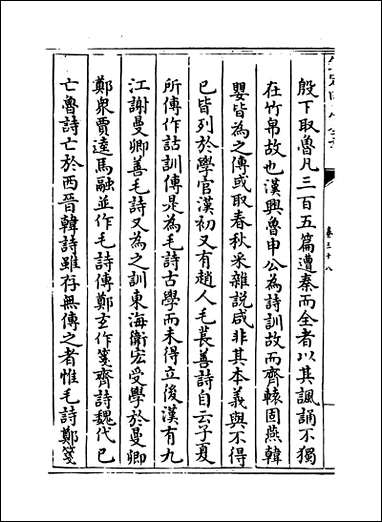 殷下取魯凡三百五篇遭秦而全者以其諷誦不獨
在竹帛故也漢興魯申公為詩訓故而齊轅固燕韓
嬰皆為之傳或取春秋采雜說咸非其本義與不得
已皆列於學官漢初又有趙人毛萇善詩自云子夏
所傳作詁訓傳是為毛詩古學而未得立後漢有九
江謝曼卿善毛詩又為之訓東海衛宏受學於曼卿
鄭衆賈逵馬融並作毛詩傳鄭玄作箋齊詩魏代已
亡魯詩亡於西晉韓詩雖存無傳之者惟毛詩鄭箋
卷三十八